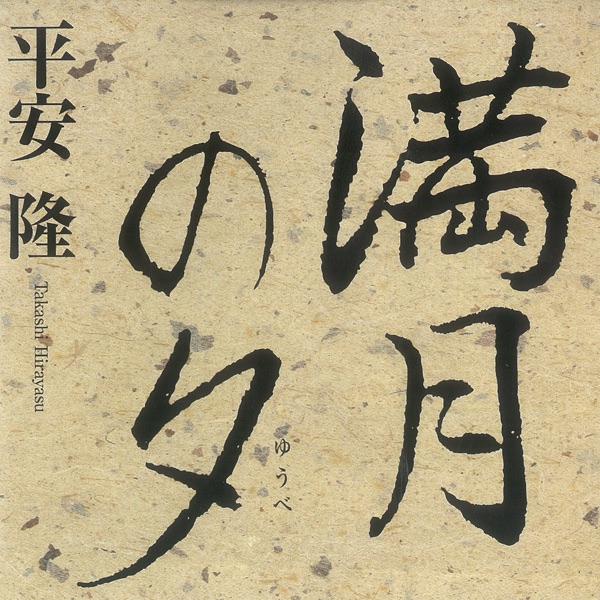 満月
の夕
ゆうべ
平安 隆
Takashi Hirayasu